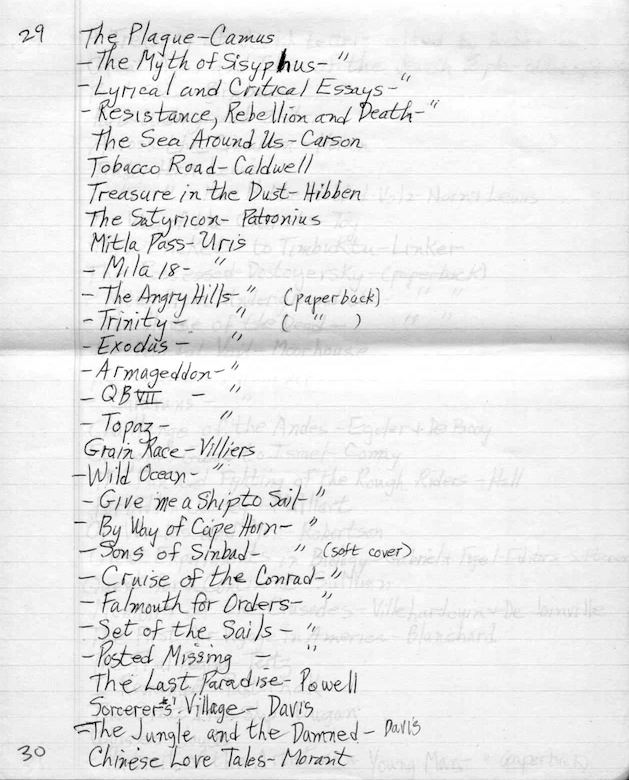 29 The Plague-Camus
- The Myth of Sisyphus- "
- Lyrical and Critical Essays- "
- Resistance, Rebellion and Death- "
The Sea Around Us- Carson
Tobacco Road- Caldwell
Treasure in the Dust- Hibben
The Satyricon- Patronius
Mitla Pass- Uris
- Mila 18- "
- The Angry Hills " (paperback)
- Trinity- " ( " )
- Exodus - "
- Armageddon- "
- QB VII - "
- Topaz- "
Grain Race- Villiers
- Wild Ocean- "
- Give me a Ship to Sail- "
- By Way of Cape Horn- "
- Sons of Sinbad- " (soft cover)
- Cruise of the Conrad- "
- Falmouth for Orders- "
- Set of the Sails- "
- Posted Missing - "
The Last Paradise- Powell
Sorcerer's' Village- Davis
- The Jungle and the Damned- Davis
30 Chinese Love Tales- Morant